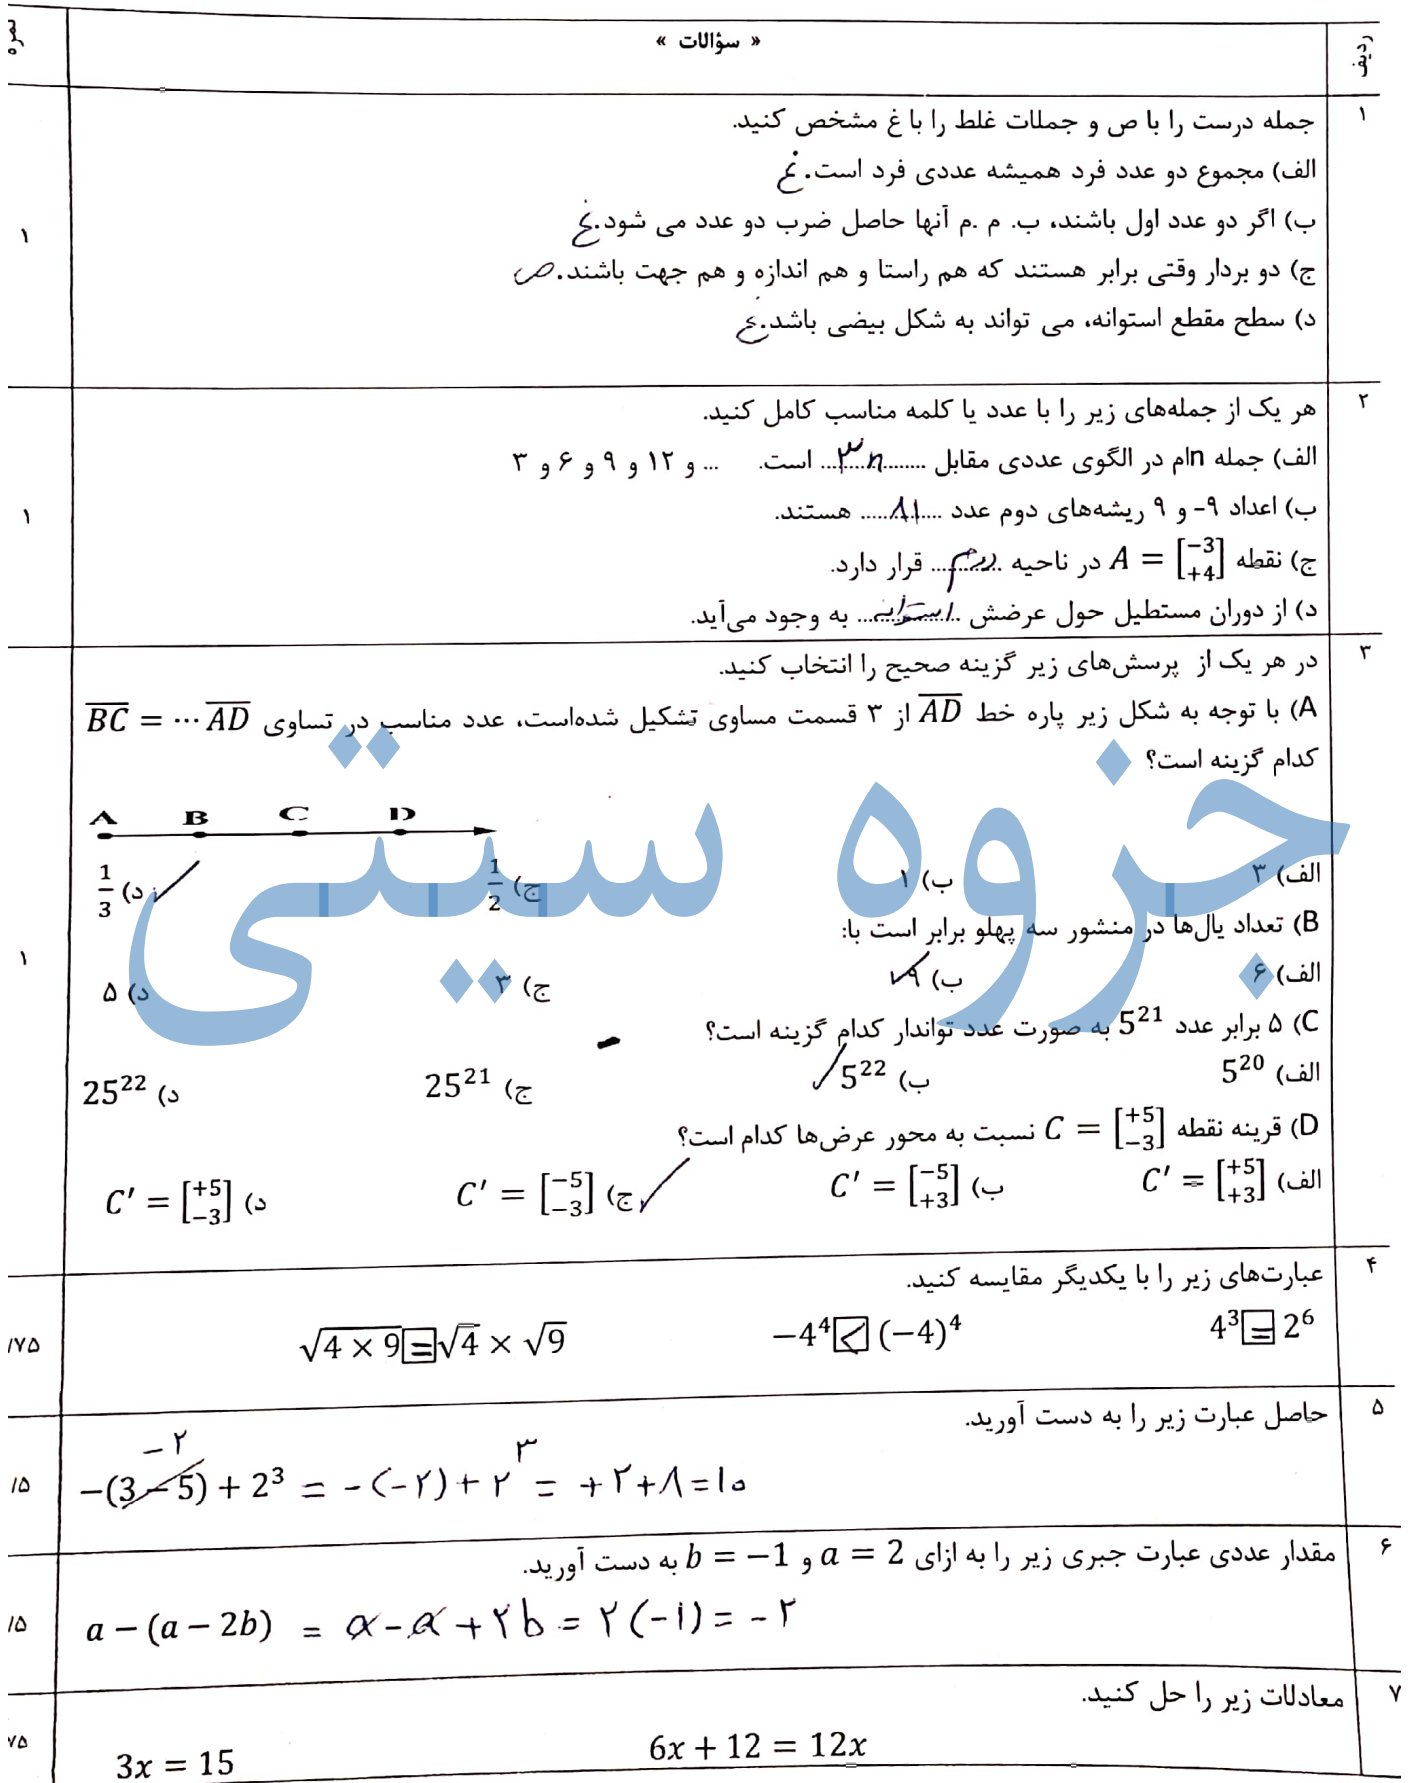 نمره
« سؤالات »
ردیف
۱
جمله درست را با ص و جملات غلط را با غ مشخص کنید.
الف) مجموع دو عدد فرد همیشه عددی فرد است. غ
ب) اگر دو عدد اول باشند، ب. م .م آنها حاصل ضرب دو عدد می شود. غ
ج) دو بردار وقتی برابر هستند که هم راستا و هم اندازه و هم جهت باشند. ص
د) سطح مقطع استوانه، می تواند به شکل بیضی باشد. غ
۱
۲
هر یک از جمله‌های زیر را با عدد یا کلمه مناسب کامل کنید.
الف) جمله nام در الگوی عددی مقابل ........۳n... است. ... و ۱۲ و ۹ و ۶ و ۳
ب) اعداد ۹- و ۹ ریشه‌های دوم عدد ....۸۱.... هستند.
ج) نقطه A = [−3 +4] در ناحیه ..دوم.. قرار دارد.
د) از دوران مستطیل حول عرضش ..استوانه.. به وجود می‌آید.
۱
۳
در هر یک از پرسش‌های زیر گزینه صحیح را انتخاب کنید.
A) با توجه به شکل زیر پاره خط AD از ۳ قسمت مساوی تشکیل شده‌است، عدد مناسب در تساوی BC = ⋯ AD
کدام گزینه است؟
A B C D
الف) ۳ ب) ۱ ج) 1/2 د) 1/3 ✓
B) تعداد یال‌ها در منشور سه پهلو برابر است با:
الف) ۶ ب) ۹ ✓ ج) ۳ د) ۵
C) ۵ برابر عدد 5²¹ به صورت عدد تواندار کدام گزینه است؟
الف) 5²⁰ ب) 5²² ✓ ج) 25²¹ د) 25²²
D) قرینه نقطه C = [+5 −3] نسبت به محور عرض‌ها کدام است؟
الف) C′ = [+5 +3] ب) C′ = [−5 +3] ج) C′ = [−5 −3] ✓ د) C′ = [+5 −3]
۱
جزوه سیتی
۴
عبارت‌های زیر را با یکدیگر مقایسه کنید.
4³ = 2⁶ −4⁴ < (−4)⁴ √4 × 9 = √4 × √9
/۷۵
۵
حاصل عبارت زیر را به دست آورید.
−۲
−(3 − 5) + 2³ = −(−۲) + ۲³ = +۲+۸=۱۰
/۵
۶
مقدار عددی عبارت جبری زیر را به ازای a = 2 و b = −1 به دست آورید.
a − (a − 2b) = a − a + ۲b = ۲(−۱) = −۲
/۵
۷
معادلات زیر را حل کنید.
3x = 15 6x + 12 = 12x
۷۵